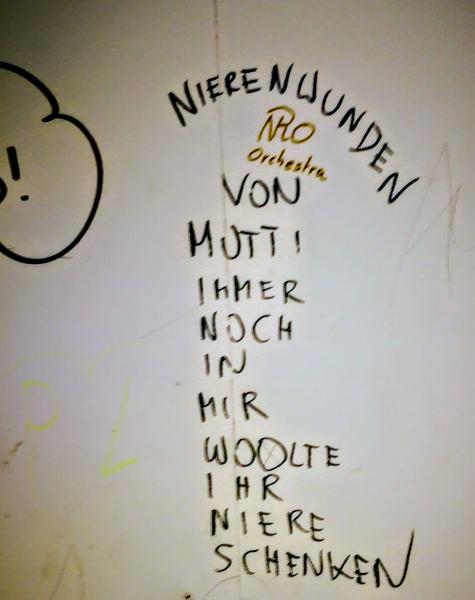 NIERENWUNDEN
NRO
Orchestra
VON
MUTTI
IMMER
NOCH
IN
MIR
WOOLTE
IHR
NIERE
SCHENKEN
!